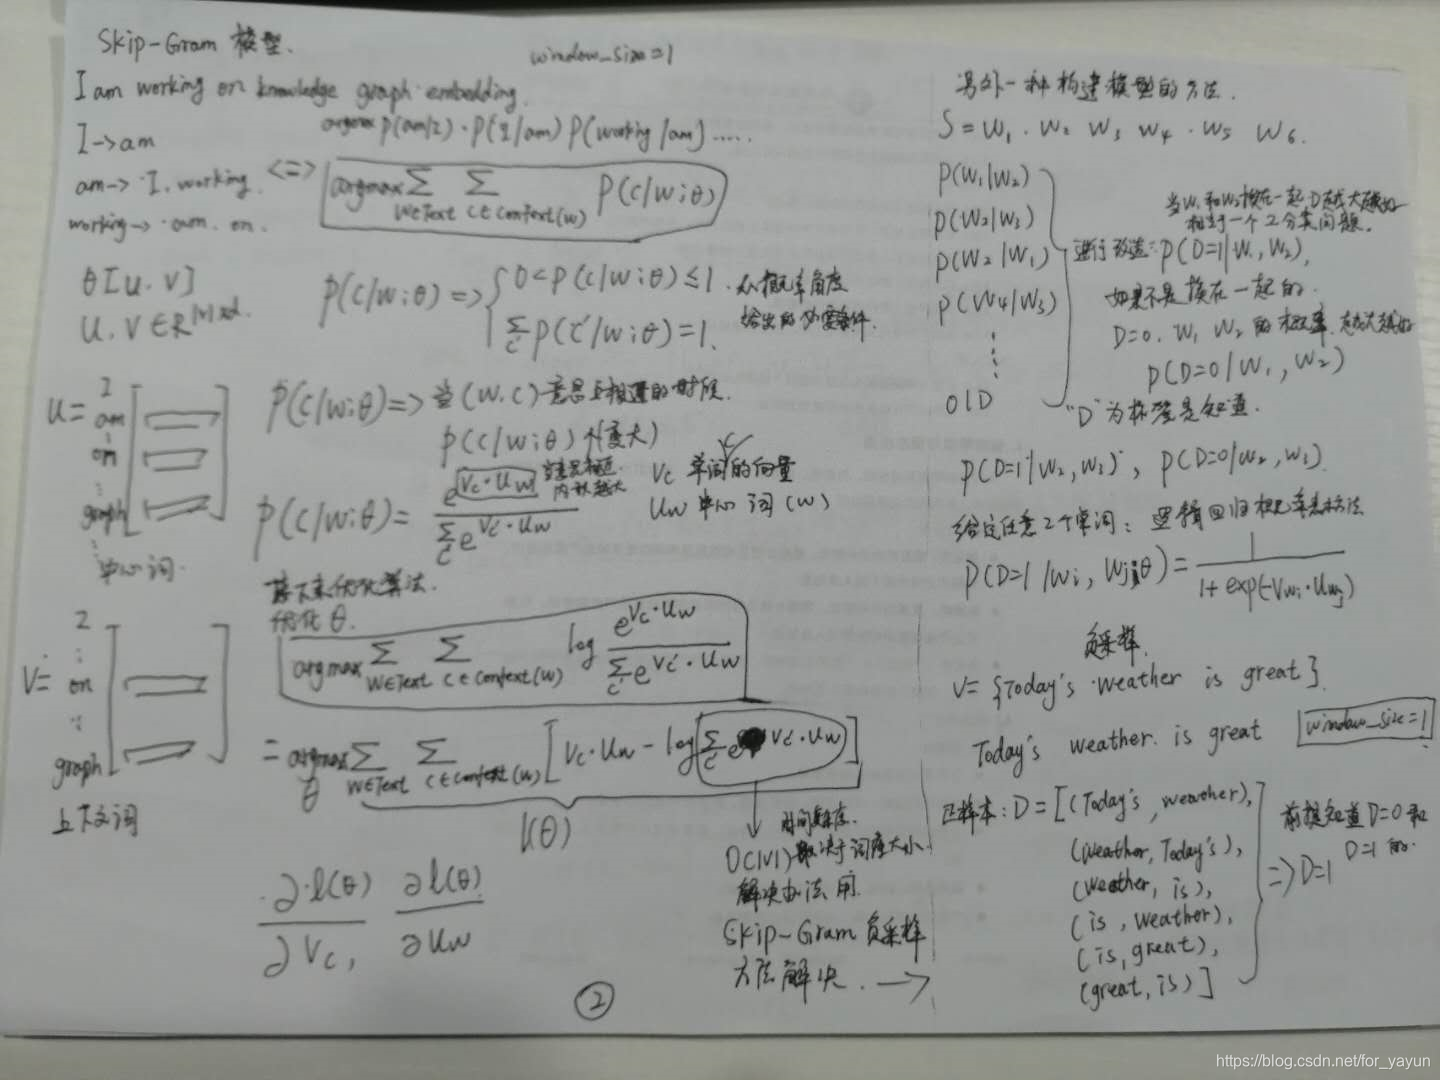 Skip-Gram 模型.
window_size=1
I am working on knowledge graph embedding.
argmax p(am/I)·p(I/am) p(working/am).....
I->am
am->·I. working. <=> argmax∑ ∑ p(c/w;θ)
w∈Text c∈Context(w)
working->·am. on.
θ[U.V]
U.V∈R^|V|xd.
p(c/w;θ)=>{0<p(c/w;θ)≤1. 从概率角度
∑p(c'/w;θ)=1. 给出的必要条件.
c'
U= I
am
on
graph
中心词.
p(c/w;θ)=>当(w.c)意思上相近的时候.
p(c/w;θ)↑(变大)
p(c/w;θ)= e^(Vc·Uw) / ∑e^(Vc'·Uw)
内积越大
Vc 单词的向量
Uw 中心词(w)
接下来优化算法.
优化θ.
argmax∑ ∑ log e^(Vc·Uw) / ∑e^(Vc'·Uw)
w∈Text c∈Context(w)
V=
on
graph
上下文词
=argmax∑ ∑ [Vc·Uw-log(∑e^(Vc'·Uw))]
θ w∈Text c∈Context(w)
l(θ)
∂·l(θ)/∂Vc, ∂l(θ)/∂Uw
时间复杂度.
O(|V|)取决于词库大小.
解决办法用
Skip-Gram 负采样
方法解决. ->
②
另外一种构建模型的方法.
S=W1.W2 W3 W4.W5 W6.
p(W1|W2)
p(W2|W3)
p(W2|W1)
p(W4|W3)
当W1和W2挨在一起,D越大越好
相当于一个2分类问题.
进行改造:p(D=1|W1,W2),
如果不是挨在一起的.
D=0.W1 W2的概率.越大越好
p(D=0|W1,W2)
"D"为标签是知道.
p(D=1|W2,W3), p(D=0|W2,W3).
给定任意2个单词:逻辑回归概率表示法
p(D=1|Wi,Wj;θ)= 1 / 1+exp(-Vwi·Uwj)
负采样.
V={Today's·weather is great}.
Today's weather. is great window_size=1
正样本:D=[(Today's,weather),
(weather,Today's),
(weather,is),
(is,weather),
(is,great),
(great,is)]
=>D=1
前提知道D=0和
D=1的.
https://blog.csdn.net/for_yayun